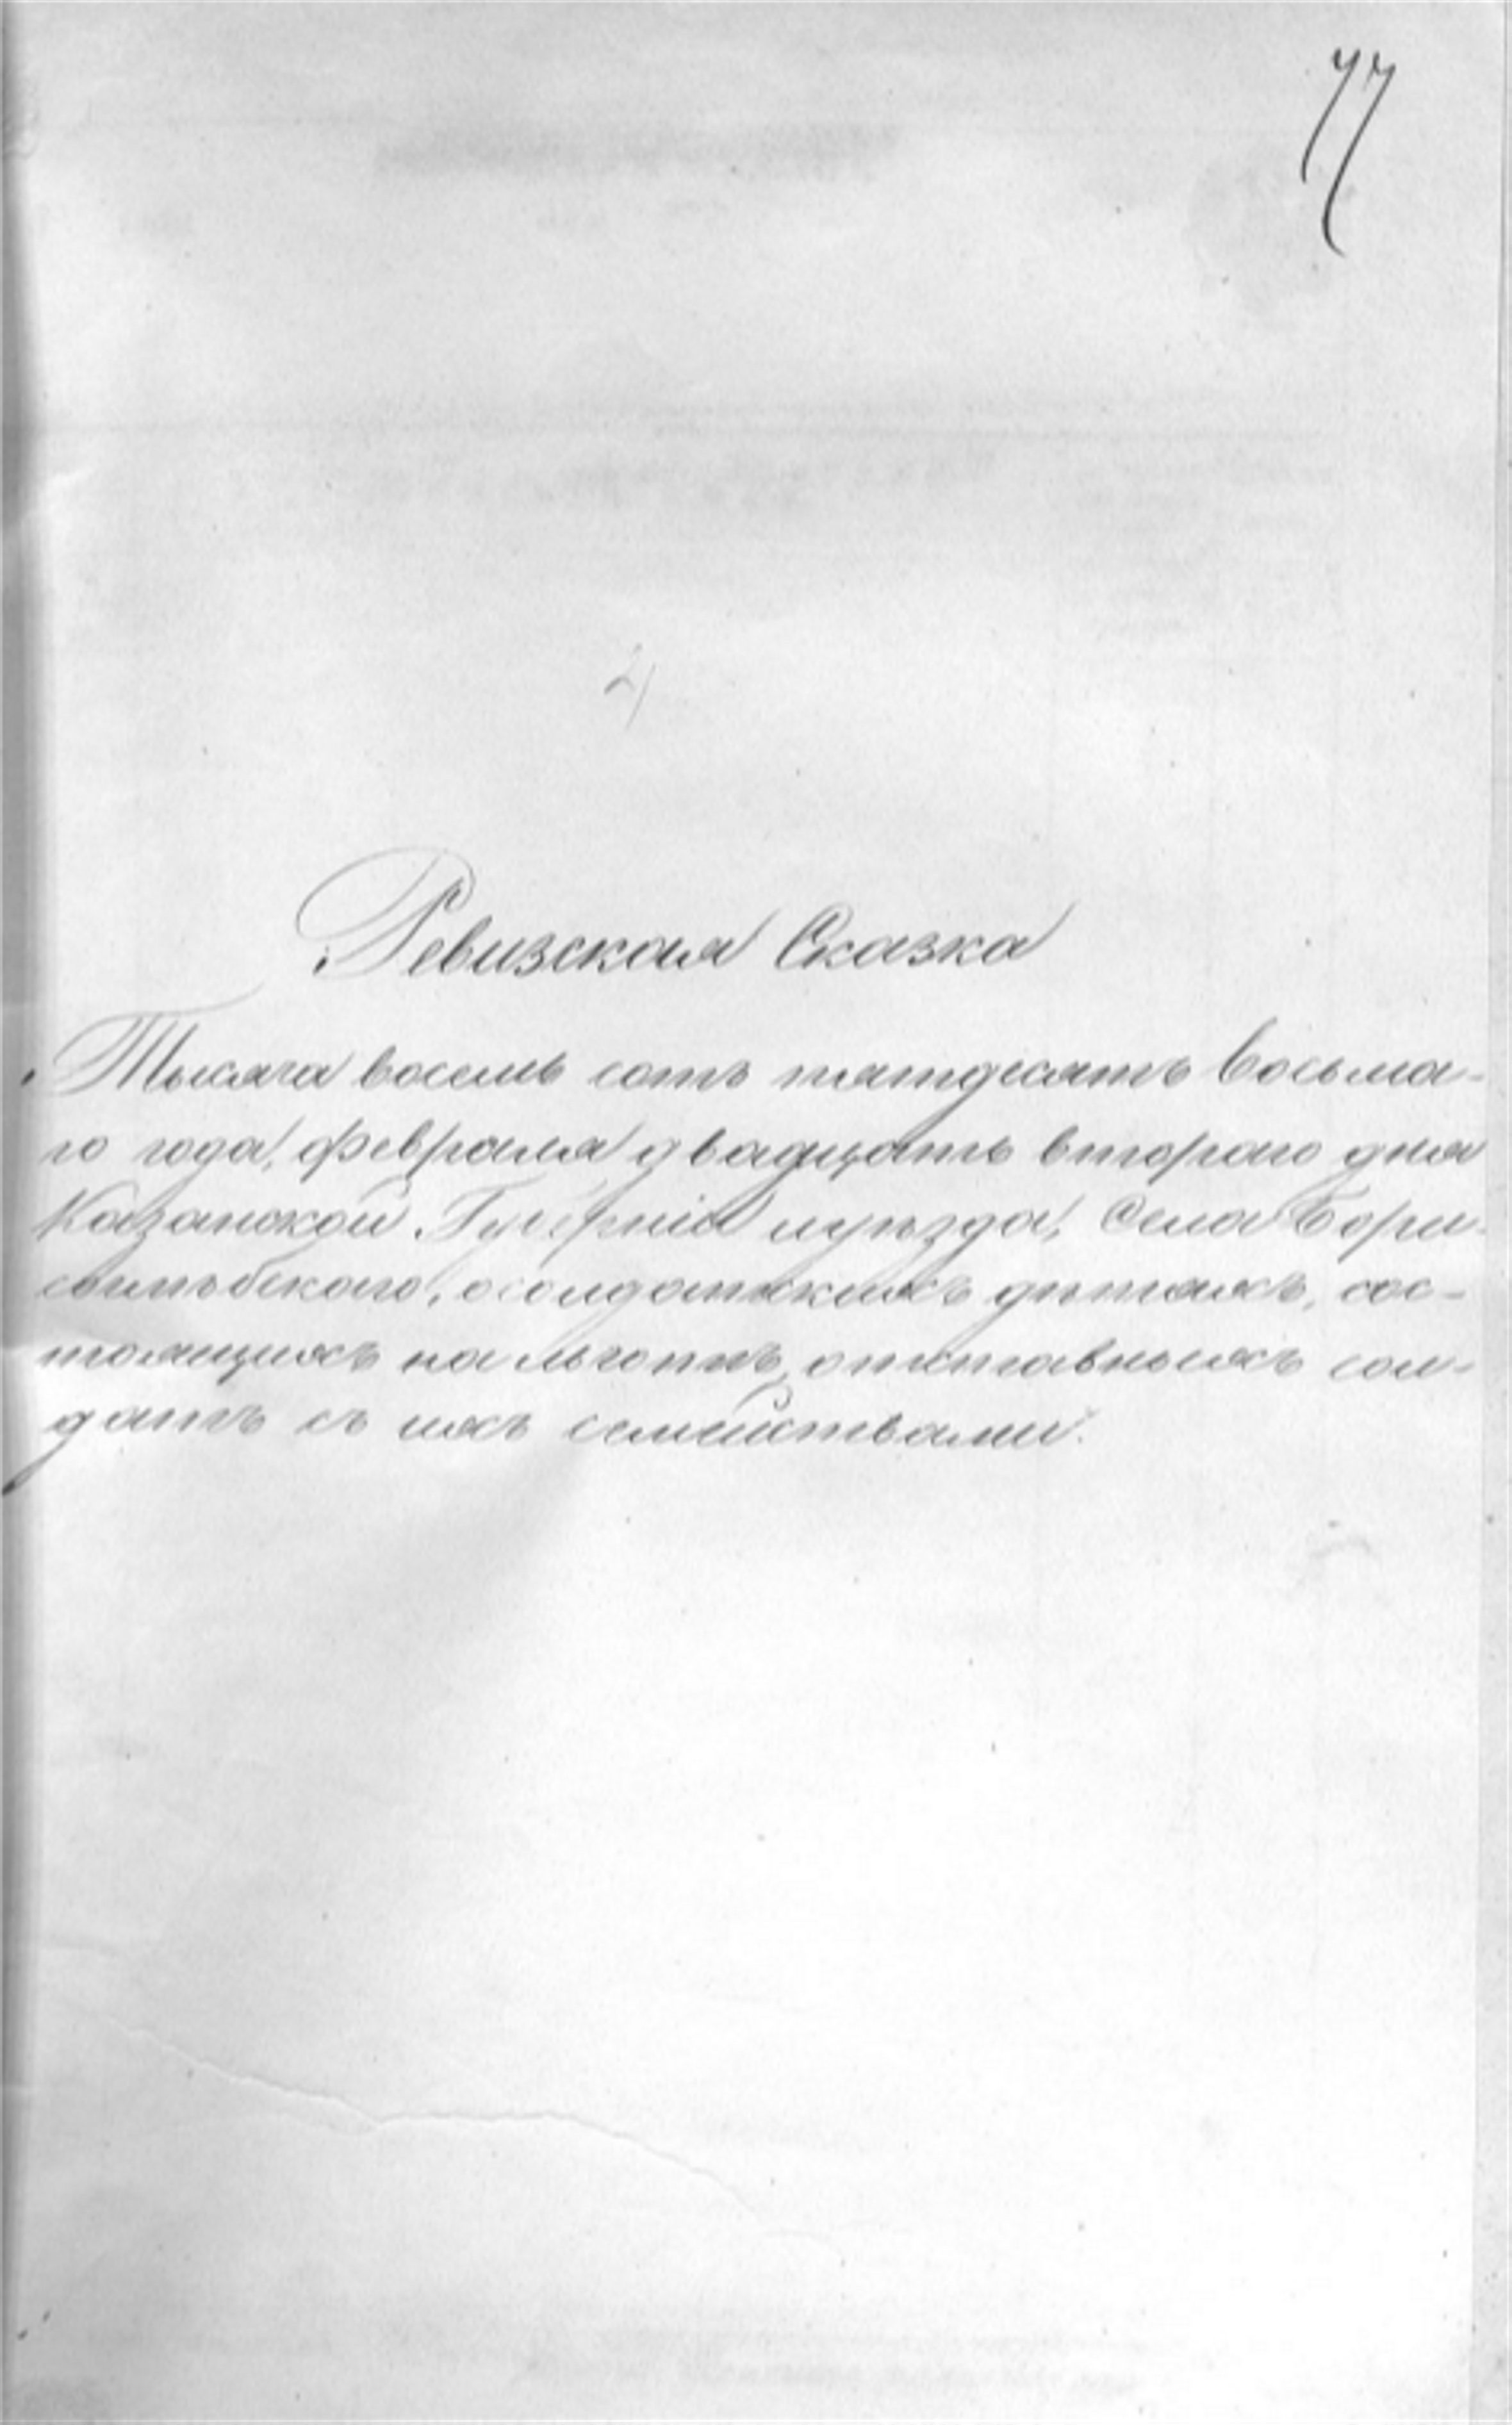 77
4
Ревизская Сказка
Тысяча восемь сотъ пятдесятъ восьма-
го года, февраля двадцать втораго дня
Казанской Губерніи и уѣзда, Села Бори-
скольбскаго, о солдатскихъ дѣтяхъ, сос-
тоящихъ на льготѣ, отставныхъ сол-
датъ съ ихъ семействами.